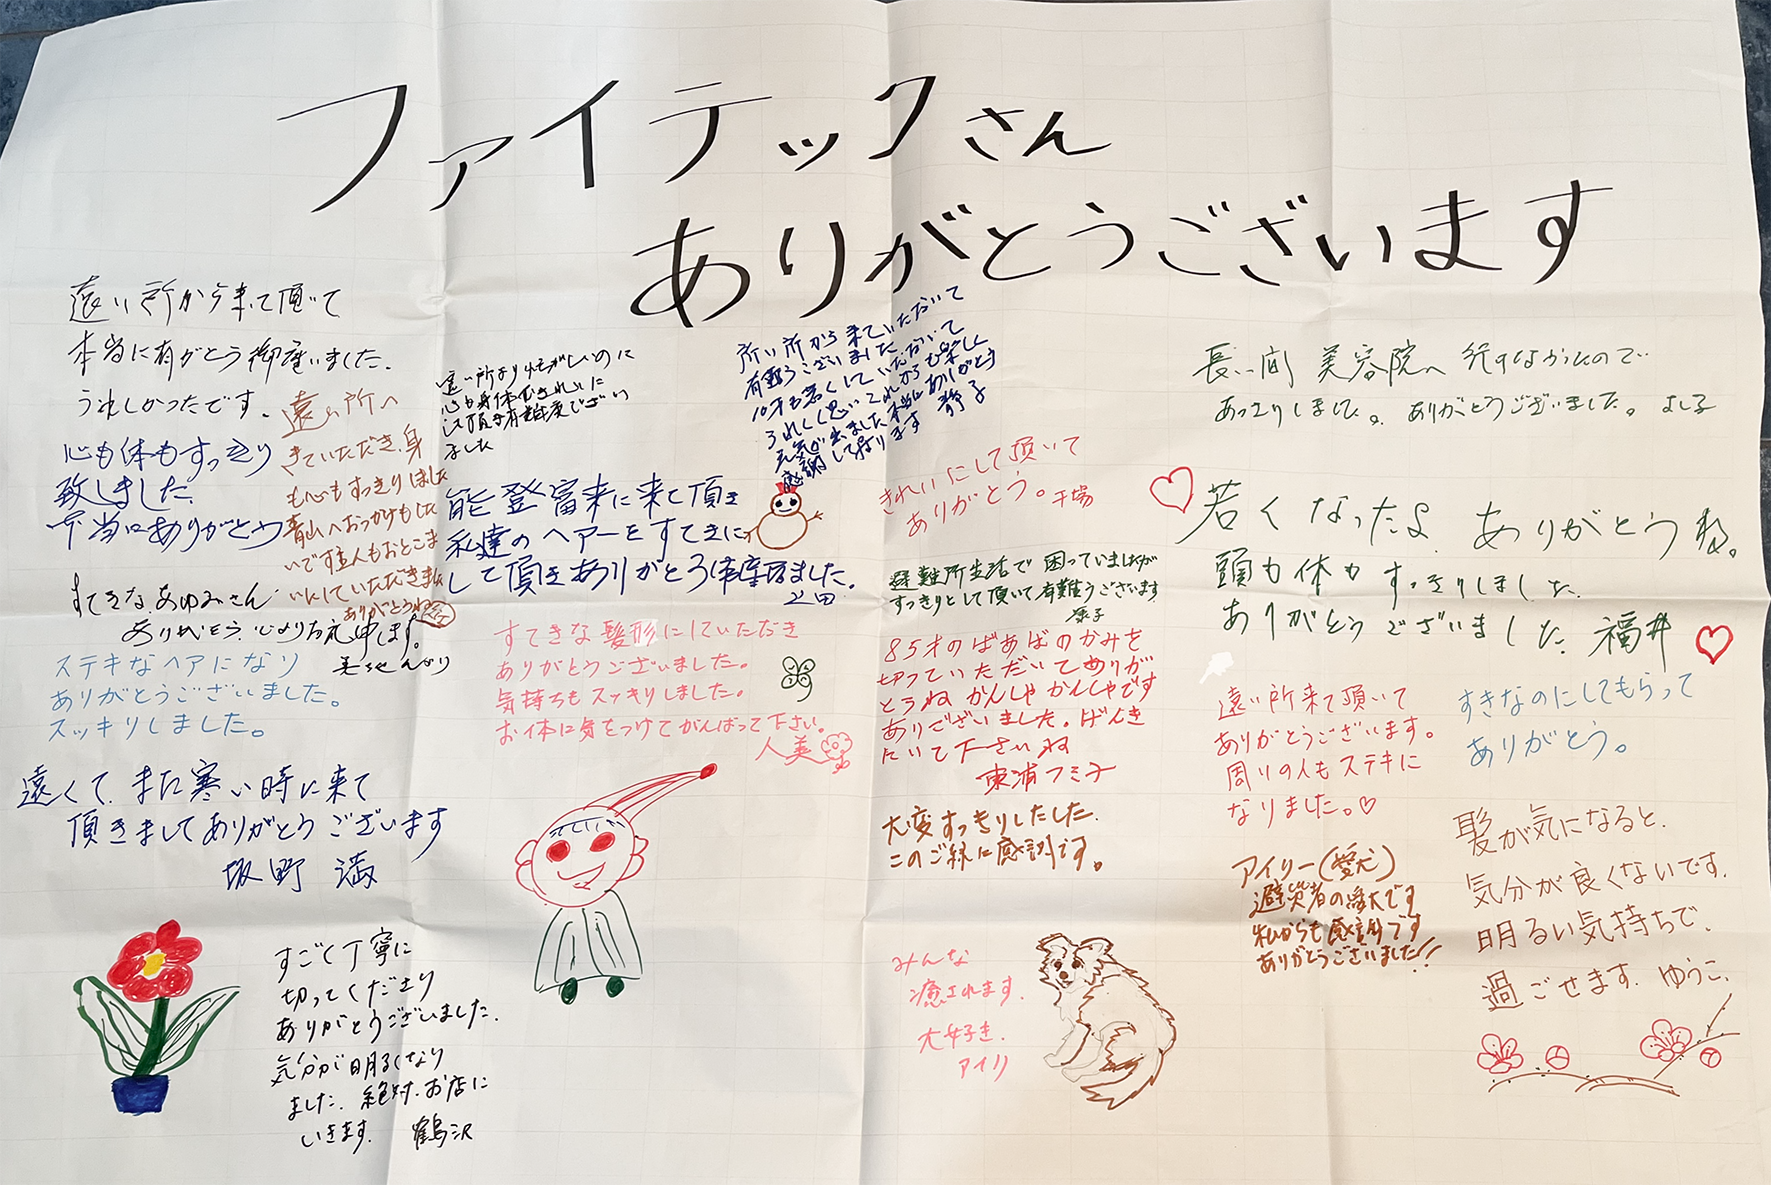 ファイテックさん
ありがとうございます
遠い所から来て頂いて
本当に有がとう御座いました。
うれしかったです。
心も体もすっきり
致しました。
本当にありがとう
遠い所へ
きていただき、身
も心もすっきりしました
青山へおでかけもしたい
いです主人もおとこま
いにしていただきました
ありがとうね
すてきな、あゆみさん
ありがとう、心よりお礼申します。
ステキなヘアになり
ありがとうございました。
スッキリしました。
遠くて、また寒い時に来て
頂きましてありがとうございます
坂野 満
すごく丁寧に
切ってくださり
ありがとうございました。
気分が明るくなり
ました。絶対、お店に
いきます。 鶴沢
遠い所より忙がしいのに
心も身体もきれいに
して頂き有難度ござい
ました
能登富来に来て頂き
私達のヘアーをすてきに
して頂きありがとう御座いました。
上田
すてきな髪形にしていただき
ありがとうございました。
気持ちもスッキリしました。
お体に気をつけてがんばって下さい。
人美
所い所から来ていただいて
有難うございました
10才も若くしていただいて
うれしく思いこれからも楽しく
元気が出ました本当にありがとう
感謝して居ります 静子
きれいにして頂いて
ありがとう。干場
避難所生活で困っていましたが
すっきりとして頂いて有難うございます
85才のばあばのかみを
切っていただいてありが
とうね かんしゃかんしゃです
ありございました。げんき
にいて下さいね
東浦フミ子
大変すっきりしたした。
このご縁に感謝です。
みんな
癒されます。
大好き。
アイリ
長い間 美容院へ行けなかったので
あっさりしました。ありがとうございました。よし子
若くなったよ。ありがとうね。
頭も体もすっきりしました
ありがとうございました。福井
遠い所来て頂いて
ありがとうございます。
周りの人もステキに
なりました。♡
すきなのにしてもらって
ありがとう。
アイリー(愛犬)
避災者の愛犬です
私からも感謝です
ありがとうございました!!
髪が気になると、
気分が良くないです。
明るい気持ちで、
過ごせます。ゆうこ。